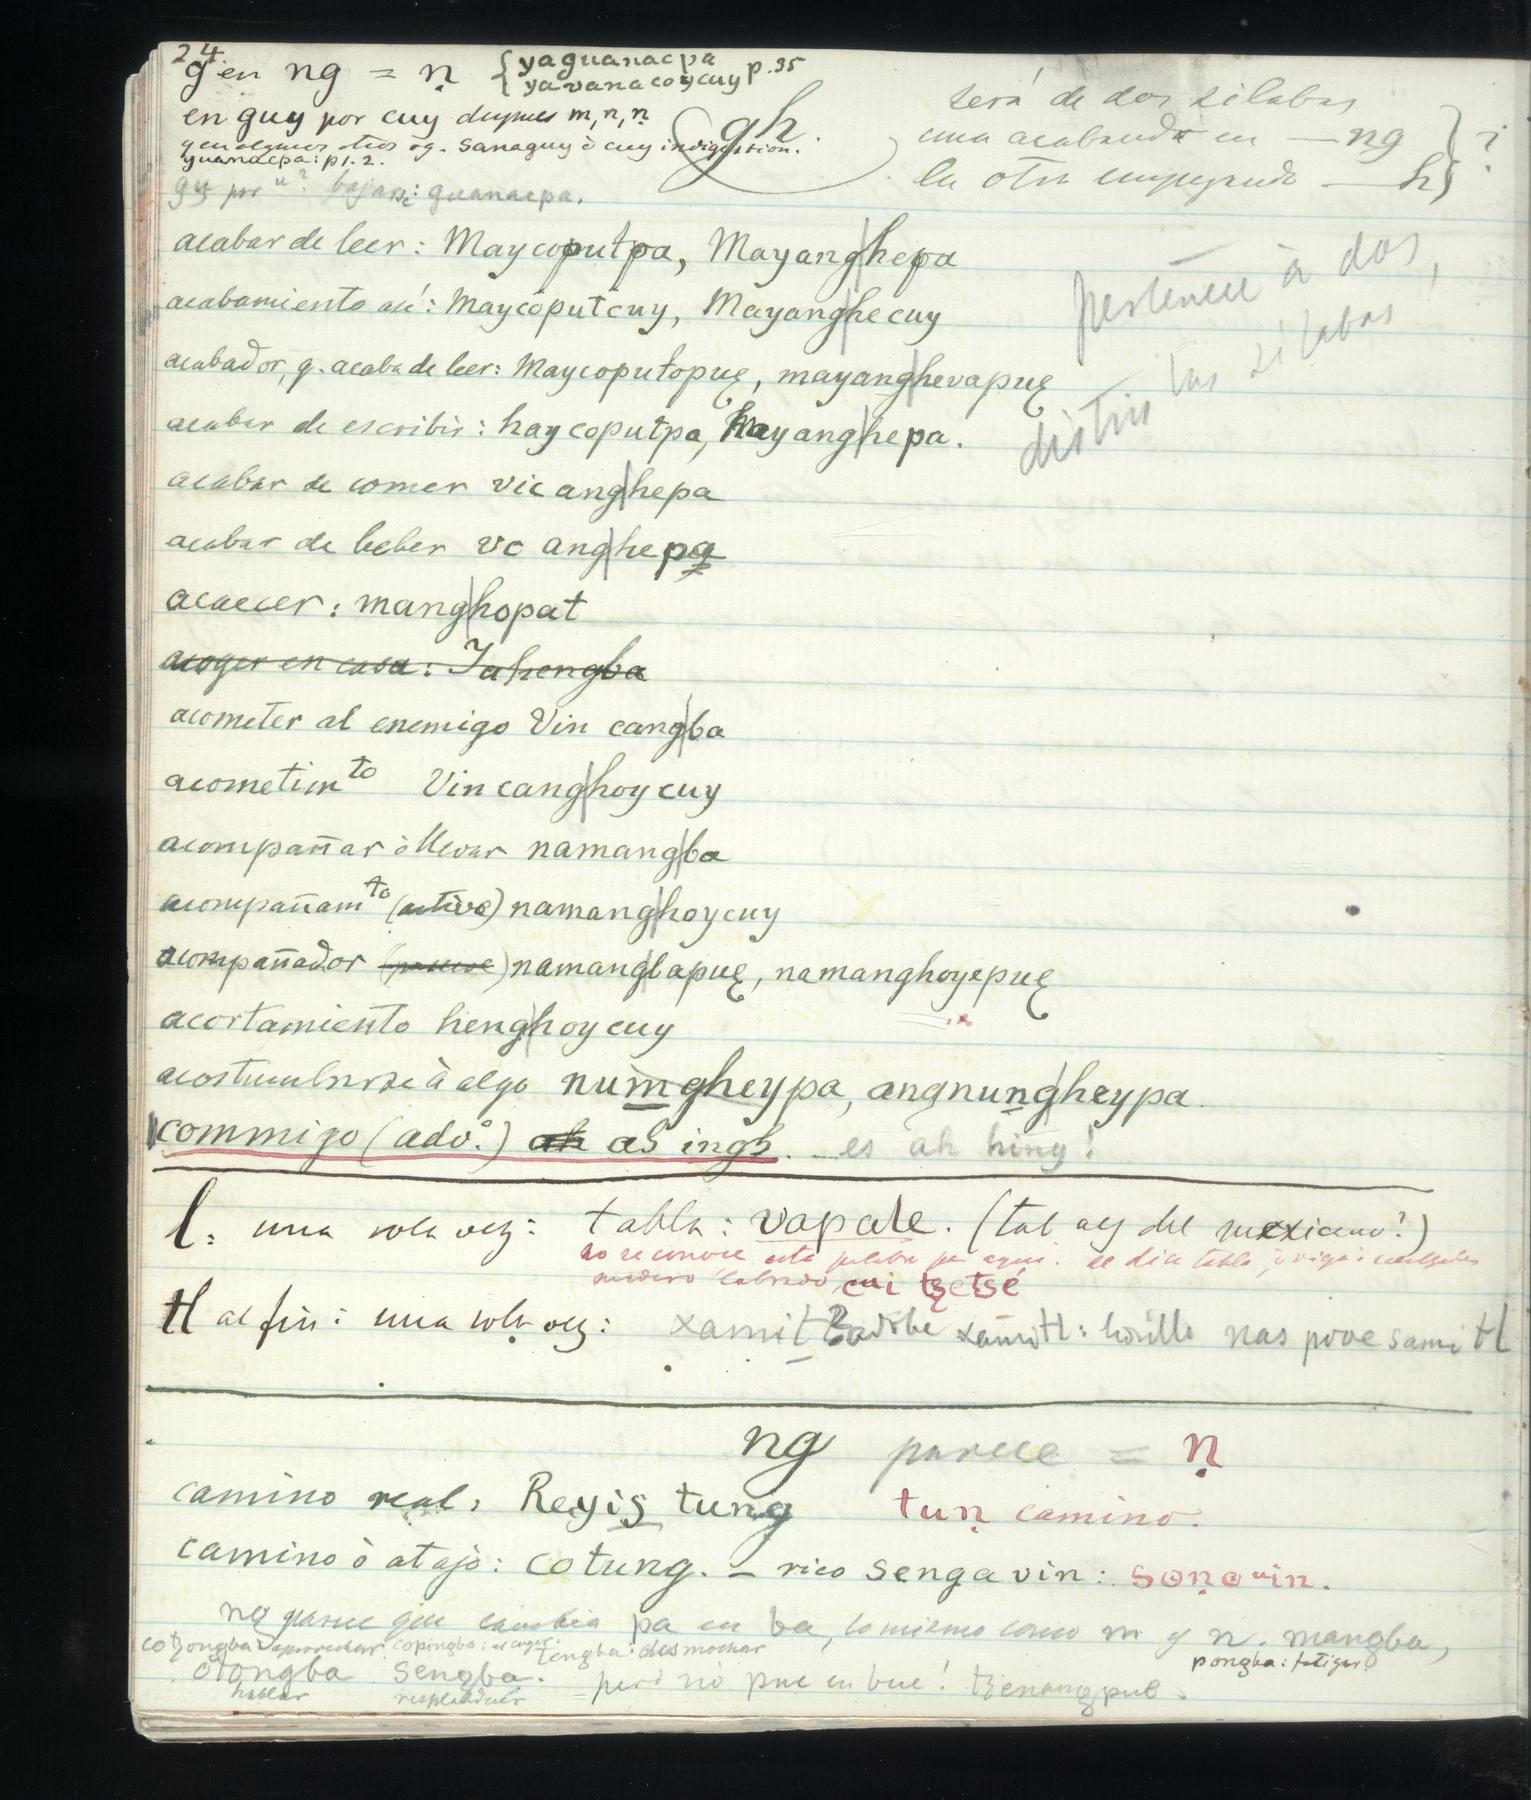 24
g en ng = ṇ { yaguanacpa
yavanacoycuy p. 35
en guy por cuy despues m, n, ṇ
y en algunos otros vg. sanaguy ò cuy indigestion.
guanacpa: p1. 2.
gu por u? bajarse: guanacpa.
gh.
será de dos silabas,
una acabando en — ng } ?
la otra empezando — h
pertenece à dos
distintas silabas
acabar de leer: Maycoputpa, Mayang|hepa
acabamiento asi: Maycoputcuy, Mayang|hecuy
acabador, q. acaba de leer: Maycoputopuę, mayang|hevapuę
acabar de escribir: haycoputpa, hayang|hepa.
acabar de comer vic ang|hepa
acabar de beber vc ang|hepa
acaecer: mang|hopat
acoger en casa: Tahengba
acometer al enemigo Vin cang|ba
acometimto Vin cang|hoy cuy
acompañar ò llevar namang|ba
acompañamto (activo) namang|hoycuy
acompañador (pasivo) namang|bapuę, namanghoyepuę
acortamiento heng|hoy cuy
acostumbrarse à algo numgheypa, angnung|heypa.
commigo (advo.) ah ingh. — es ah hing!
l: una sola vez: tabla: vapale. (tal vez del mexicano?)
no se conoce esta palabra por aqui. se dice tabla, ò viga
madero labrado, cui tzetsé
tl al fin: una sola vez: xamitl adobe xamitl: nas pove samitl
ng parece = ṇ
camino real, Reyis tung tuṇ camino.
camino ò atajo: cotung. — rico sengavin: soṇovin.
ng parece que cambia pa en ba, lo mismo como m y n. mangba,
cotzongba aprovechar. copingba: tengba: desmochar
pongba: fatigar.
otongba sengba. = pero no pue en bue! tzenangpue.
hablar resplandecer